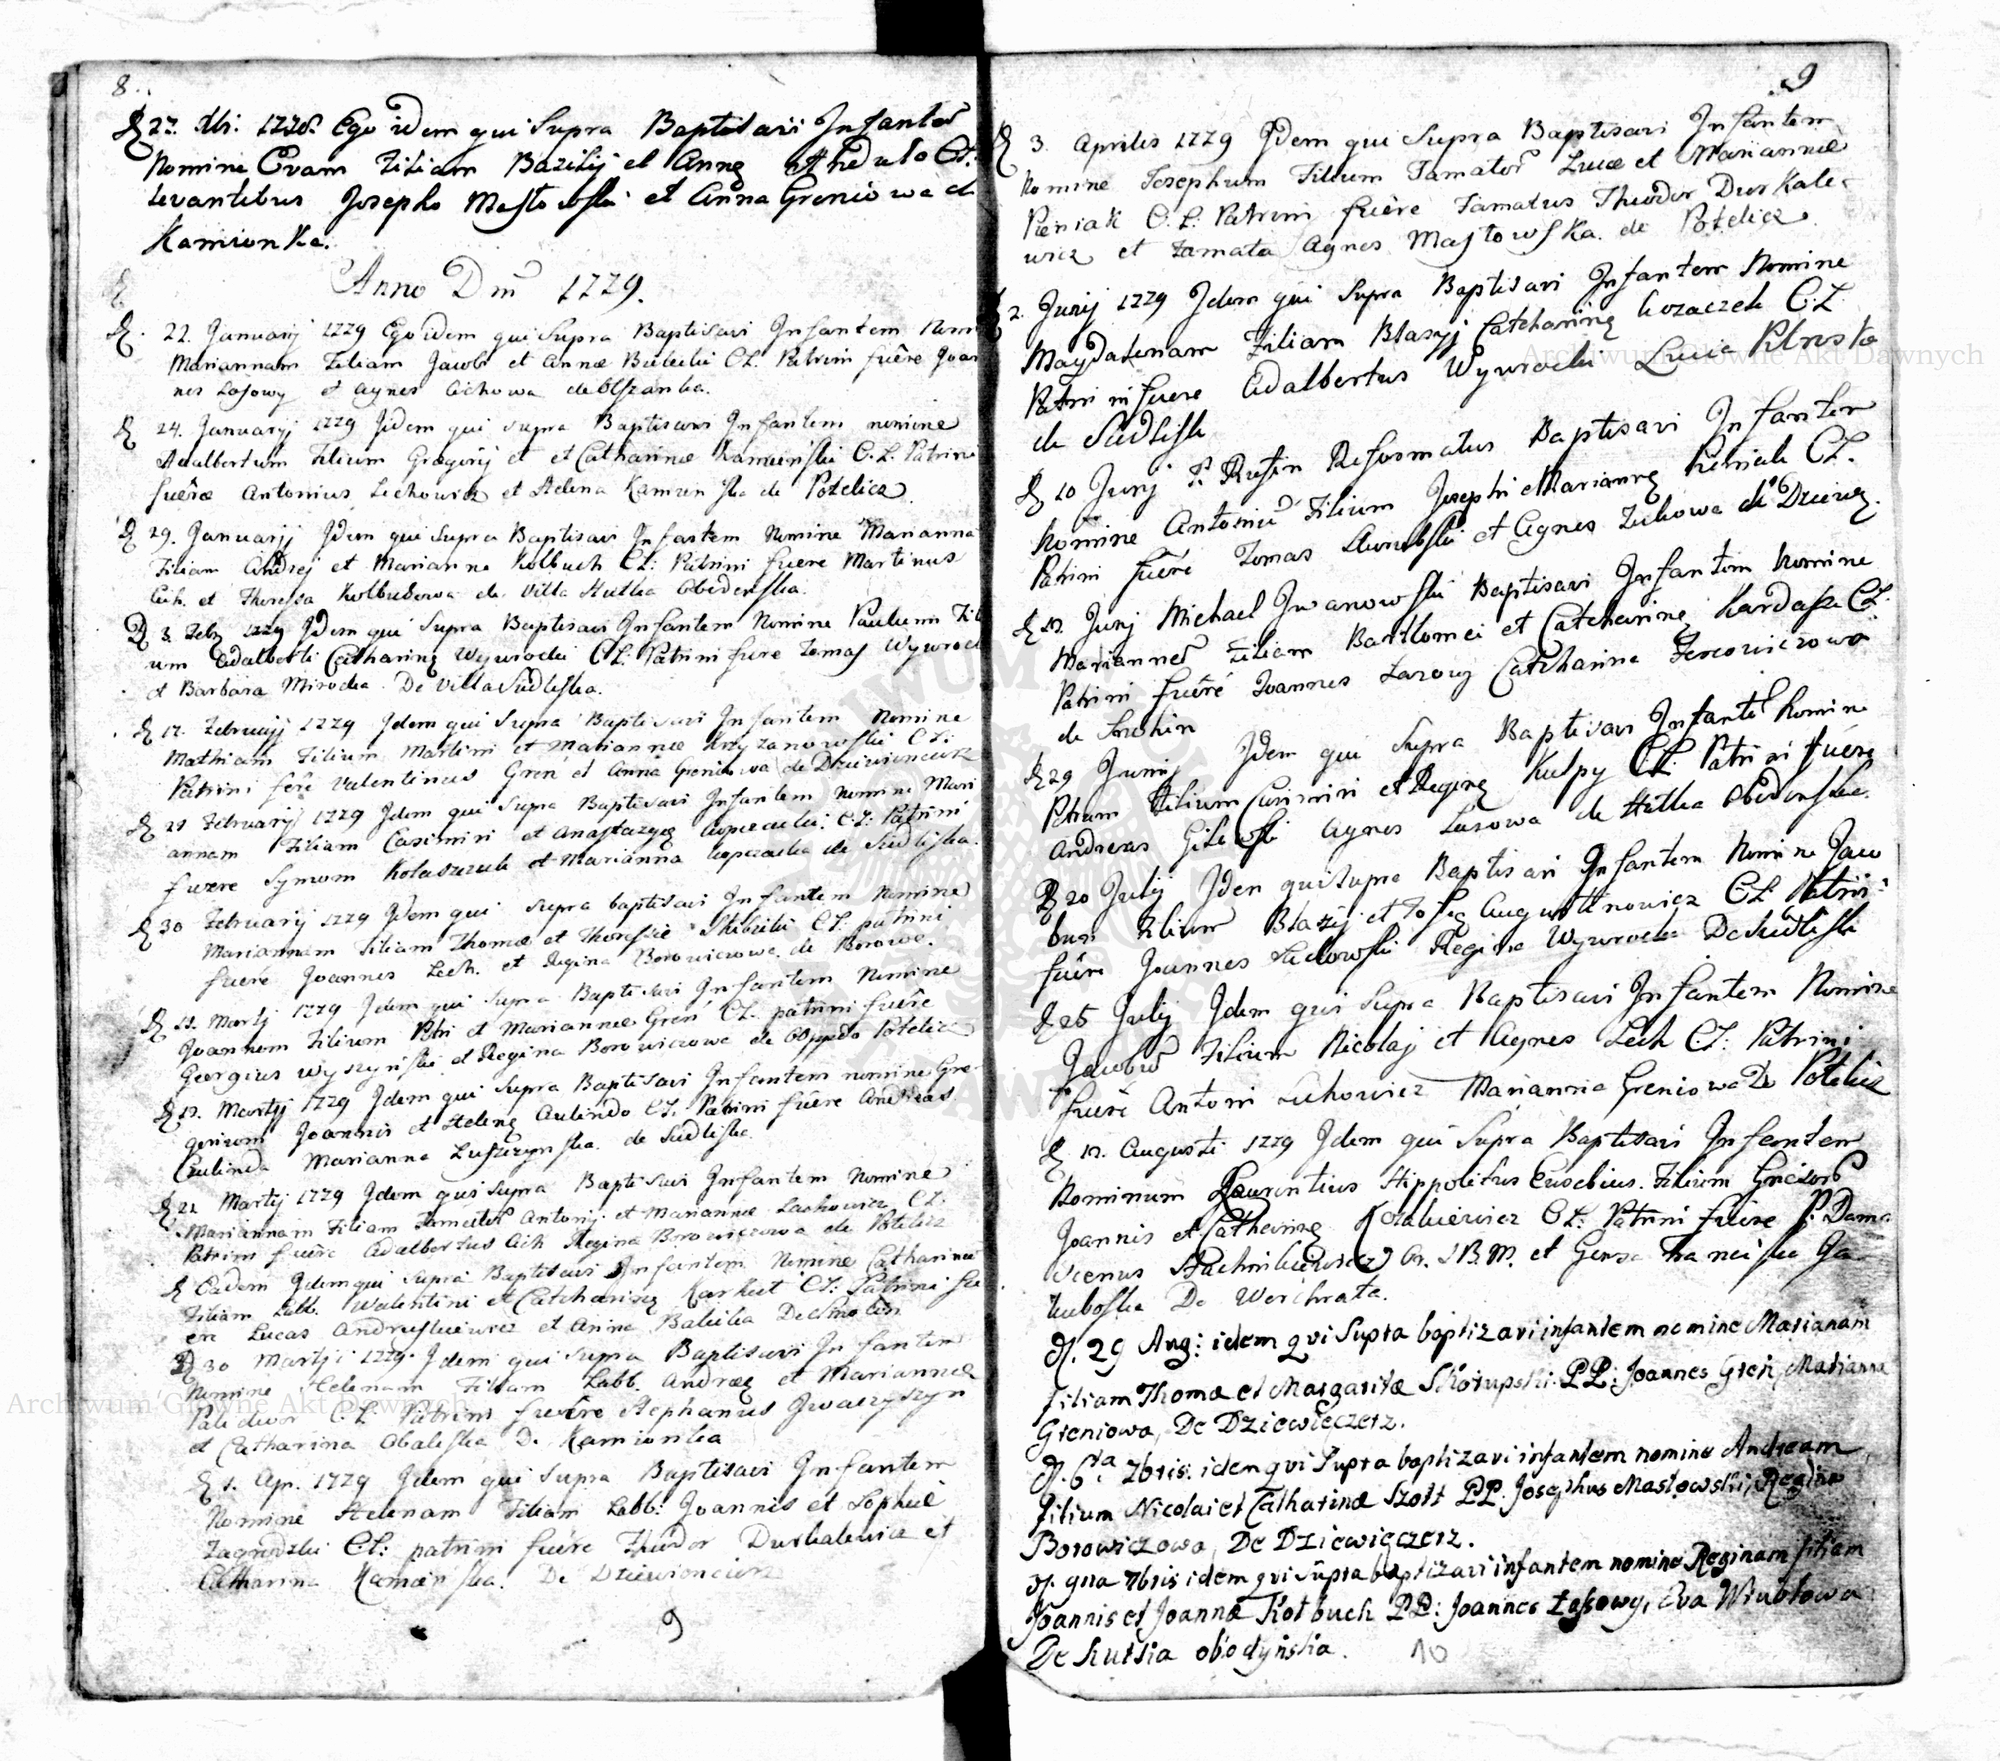 8.
D 27. Xbr: 1778. Ego idem qui Supra Baptisavi Infantem
Nomine Evam Filiam Bazilij et Annę C.L.
Levantibus Josepho Mastowski et Anna Greniowa de
Kamionka.
Anno Dni 1779.
D. 22. Januarij 1779 Ego idem qui Supra Baptisavi Infantem Nom
Mariannam Filiam Jacobi et Annæ C.L. Patrini fuêre Joan
nes Lasowy et Agnes Cichowa de
D 24. Januarij 1779 Idem qui supra Baptisavi Infantem nomine
Adalbertum Filium Gregorij et et Catharinæ Kamieński C.L. Patrini
fuêre Antonius Lechowicz et Helena Kamienska de Potelicz.
D 29. Januarij Idem qui Supra Baptisavi Infantem Nomine Marianna
Filiam Andrej et Marianna Kolbuch C.L: Patrini fuere Martinus
Cich. et Theressa Kolbuchowa de Villa Hutka Obedenska.
D 3. Feb 1779 Idem qui Supra Baptisavi Infantem Nomine Paulum Fili
um Adalberti Catharinę Wywrocki C.L: Patrini fuere Tomas Wywrock
et Barbara Mirocka. De Villa Siedliska.
D 17. Februarij 1779 Idem qui Supra Baptisavi Infantem Nomine
Mathiam Filium Martini et Mariannæ Krzyzanowski C.L:
Patrini fêre Valentinus Gren et Anna Greniowa de Dziewiencierz
D 21 Februarij 1779 Idem qui Supra Baptisavi Infantem nomine Mari
annam Filiam Casimiri et Anastazyę Kopczacki: C.L: Patrini
fuere Symeon Kolaszczuk et Marianna Kopczacka de Siedliska.
D 30 Februarij 1779 Idem qui supra baptisavi Infantem Nomine
Mariannam Filiam Thomæ et Theressiæ Skibicki C.L. patrini
fuere Joannes Lech. et Regina Borowiczowa. de Borowe.
D 12. Martij 1779 Idem qui Supra Baptisavi Infantem Nomine
Joannem Filium Petri et Mariannæ Greń C.L. patrini fuêre
Georgius Wyszyński et Regina Borowiczowa de Oppido Potelicz
D 19. Martij 1779 Idem qui Supra Baptisavi Infantem nomine Gre-
gorium Joannis et Helenę Culindo C.L. Patrini fuêre Andreas
Culinda Marianna Luszczynska. de Siedliska.
D 21 Martij 1779 Idem qui Supra Baptisavi Infantem Nomine
Mariannam Filiam Famator Antonij et Mariannæ Lachowicz C.L.
Patrini fuêre Adalbertus Cich Regina Borowiczowa de Potelicz
D Eadem Idem qui Supra Baptisavi Infantem Nomine Catharinæ
Filiam Labb. Walentini et Catcharinę Karkut C.L: Patrini fu
ere Lucas Andruskiewicz et Anna Babicka De Smolin
D 30 Martji 1779. Idem qui Supra Baptisavi Infantem
Nomine Helenam Filiam Labb. Andreæ et Mariannæ
Palidwor C.L. Patrini fuêre Stephanus Iwaczyszyn
et Catharina Obaleska De Kamionka
D 1. Apr. 1779 Idem qui Supra Baptisavi Infantem
Nomine Helenam Filiam Labb: Joannis et Sophiæ
Zagrodzki C.L: patrini fuêre Theodor Durkalewicz et
Catharina Kamienska. De Dziewiencierz
9
9
D 3. Aprilis 1779 Idem qui Supra Baptisavi Infantem
Nomine Josephum Filium Famator Lucæ et Mariannæ
Pieniak C.L. Patrini fuêre Famatus Theodor Durkale-
wicz et Famata Agnes Mastowska. de Potelicz.
2. Junij 1779 Idem qui Supra Baptisavi Infantem Nomine
Magdalenam Filiam Blasyj Catcharinę Kozaczek C.L.
Patrini fuere Adalbertus Wywrocki Lucia
de Siedlisk
D 10 Junij P. Rufin Reformatus Baptisavi Infantem
Nomine Antoniũ Filium Josephi et Mariannę Pieniak C.L.
Patrini fuêré Tomas et Agnes Zukowa de Dziewię.
D Junij Michael Iwanowski Baptisavi Infantem Nomine
Mariannã Filiam Bartlomei et Catcharinę Kardasz C.L.
Patrini fuêré Joannes Lazowy Catcharina Fercowiczowa
de Smolin
D 29 Junij Idem qui Supra Baptisavi Infantẽ Nomine
Petrum Filium Casimiri et Reginę Kulpy C.L. Patrini fuere
Andreas Gilewski Agnes Lasowa de Hutka Obedenska.
D 20 Julij Idem qui Supra Baptisavi Infantem Nomine Jaco
bum Filium Blazij et Zofię Augustinowicz C.L. Patrii
fuêre Joannes Sieclowski Regina Wywrocka De Siedliski
D 25 Julij Idem qui Supra Baptisavi Infantem Nomine
Jacobũ Filium Nicolaj et Agnes Lech C.L: Patrini
fuêre Antoni Lechowicz Marianna Greniowa De Potelicz
D 12. Augusti 1779 Idem qui Supra Baptisavi Infantem
Nominum Laurentius Hippolitus Eusebius. Filium Gnẽsorũ
Joannis et Catharinę C.L: Patrini fuêre P. Dama
scenus Or. S.B.M. et Gensa Franciska Ja-
kuboska De Werchrata.
D. 29 Aug: idem qvi Supra baptizavi infantem nomine Mariannam
Filiam Thomæ et Margaritæ Skorupski. P.P: Joannes Greń, Marianna
Greniowa, De Dziewięczerz.
D. 6ta 7bris: idem qvi Supra baptizavi infantem nomine Andream
Filium Nicolai et Catharinæ Szott P.P. Josephus Mastowski, Regina
Borowiczowa, De Dziewięczerz.
D. 9na 7bris idem qvi Supra baptizavi infantem nomine Reginam filiam
Joannis et Joannæ Kołbuch P.P: Joannes Łassowy, Eva Wrublowa
De Hutka obodyńska.
10
Archiwum Główne Akt Dawnych
Archiwum Główne Akt Dawnych